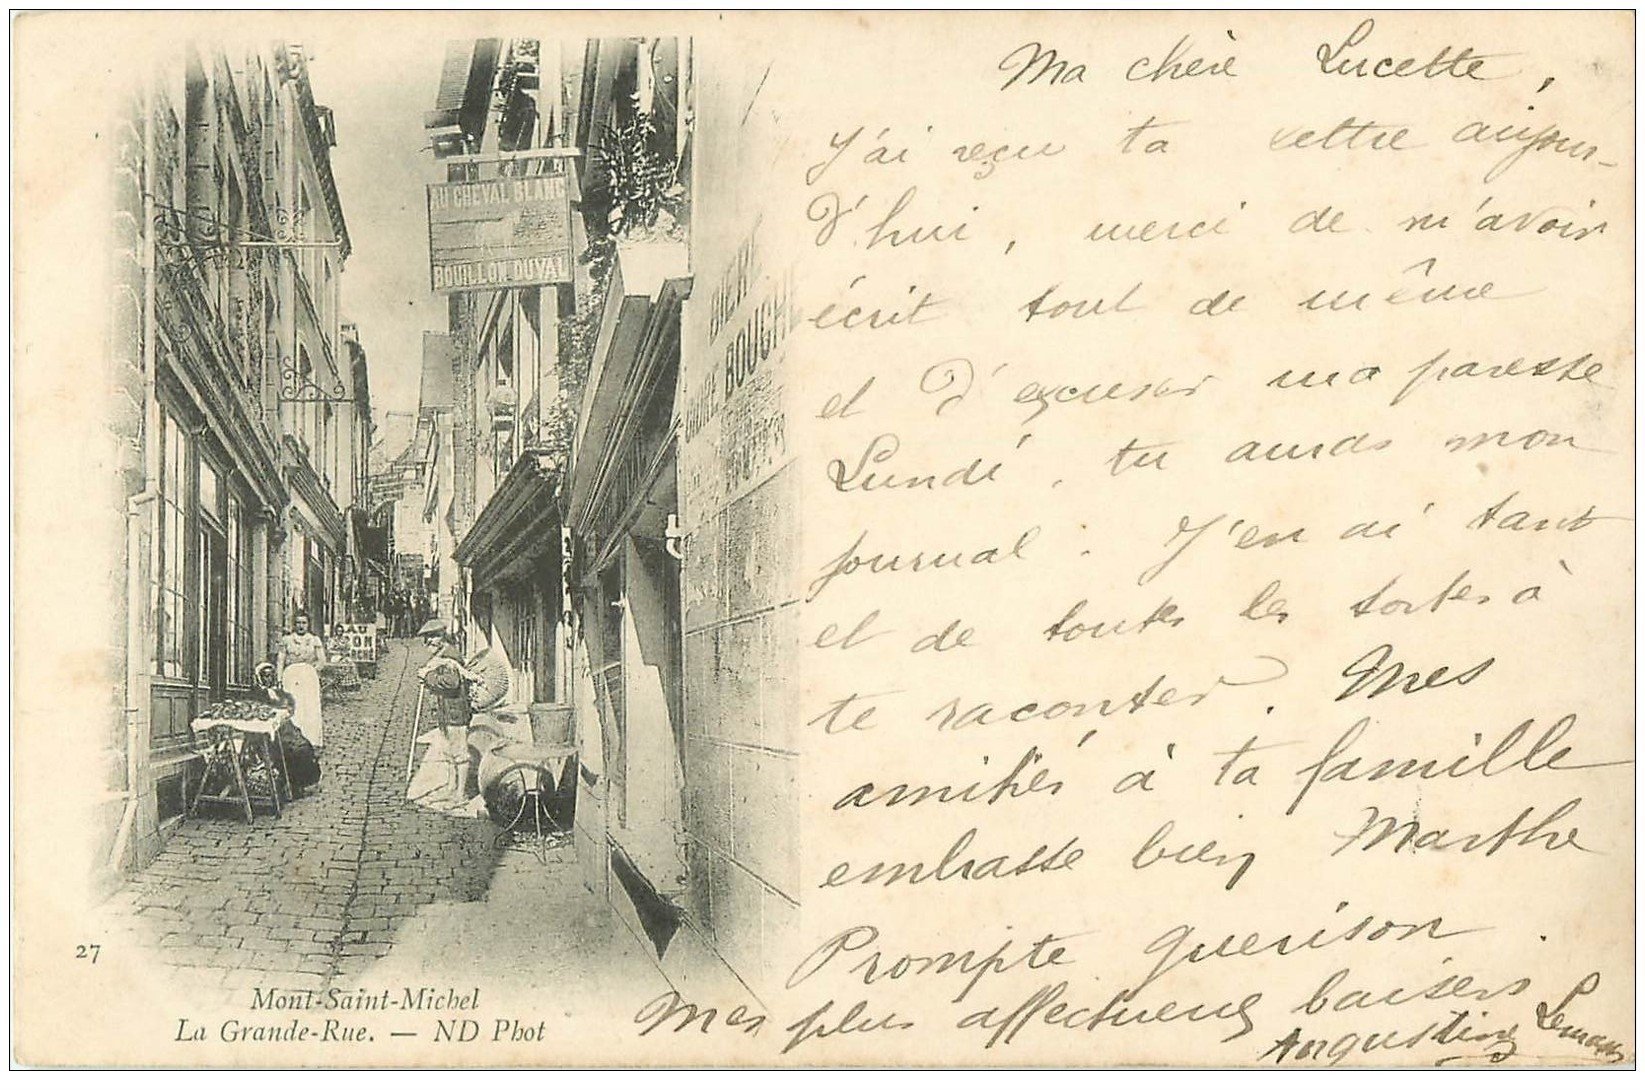 AU CHEVAL BLANC
BOUILLON DUVAL
27
Mont-Saint-Michel
La Grande-Rue. — ND Phot
Ma chère Lucette,
J'ai reçu ta lettre aujour-
d'hui, merci de m'avoir
écrit tout de même
et d'excuser ma paresse
Lundi, tu auras mon
journal. J'en ai tant
et de toutes les sortes à
te raconter. Mes
amitiés à ta famille
embrasse bien Marthe
Prompte guerison.
Mes plus affectueux baisers
Augustine